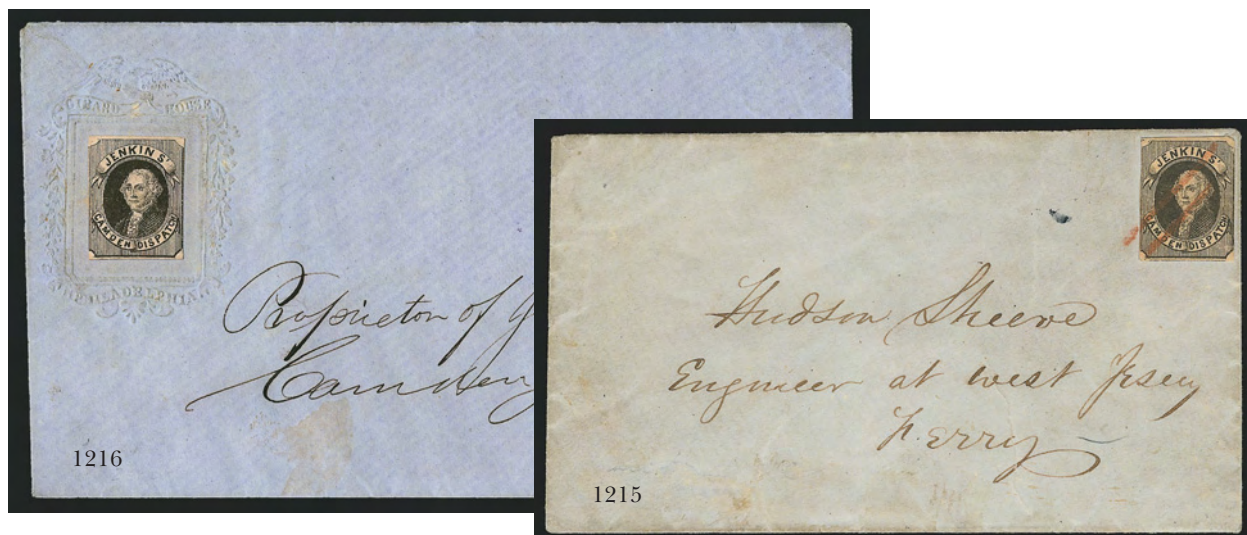 GIRARD HOUSE
JENKINS'
CAMDEN DISPATCH
PHILADELPHIA
Proprietor of
Camden
1216
JENKINS'
CAMDEN DISPATCH
Hudson Sheeve
Engineer at west Jersey
Ferry
1215